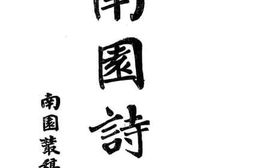 南園詩
南園叢稿